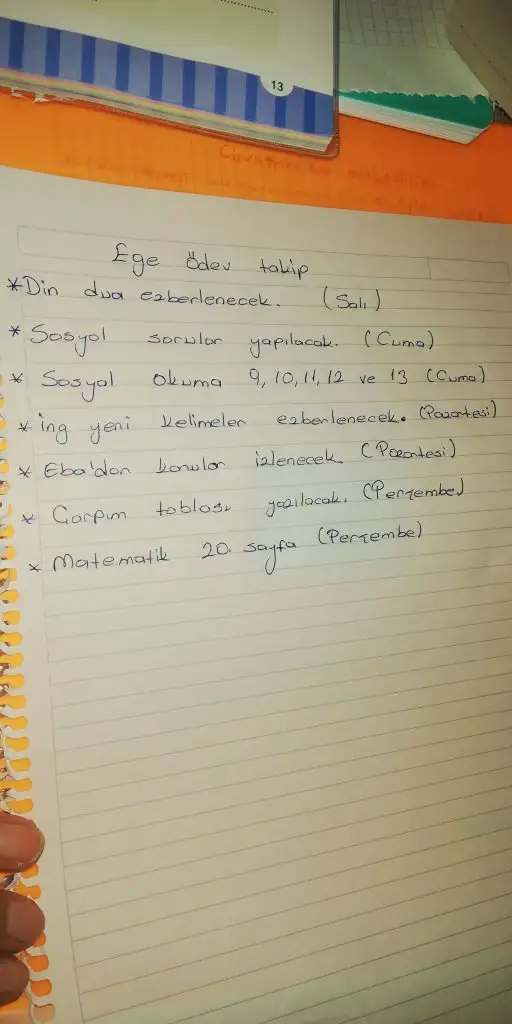 13
Ege ödev takip
*Din dua ezberlenecek. (Salı)
* Sosyal sorular yapılacak. (Cuma)
* Sosyal okuma 9, 10, 11, 12 ve 13 (Cuma)
* ing yeni kelimeler ezberlenecek. (Pazartesi)
* Eba'dan konular izlenecek. (Pazartesi)
* Çarpım tablosu yazılacak. (Perşembe)
* Matematik 20. sayfa (Perşembe)